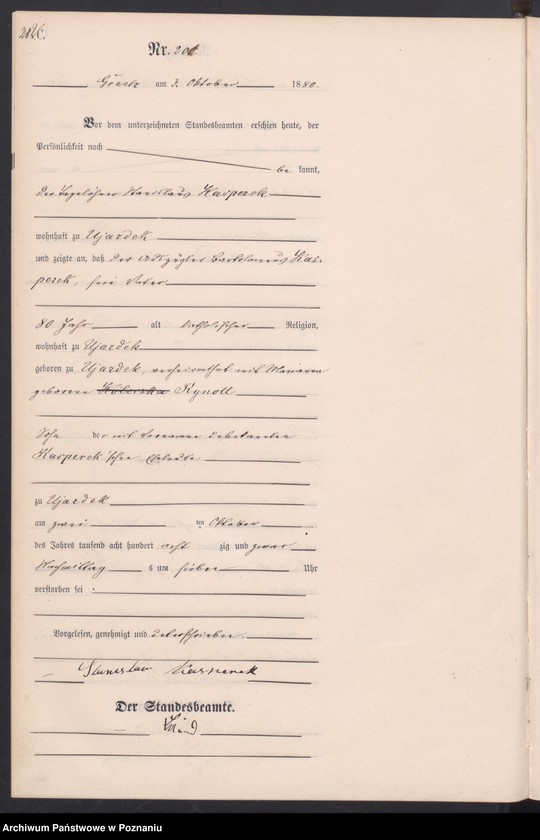 Nr. 201
Graetz am 3. Oktober 1880
Vor dem unterzeichneten Standesbeamten erschien heute, der
Persönlichkeit nach
be kannt,
der Tagelöhner Stanislaus Kasperek
wohnhaft zu Ujazdek
und zeigte an, daß der Altzügler Bartolomeus Kas-
perek, sein Vater
80 Jahr alt katholischer Religion,
wohnhaft zu Ujazdek
geboren zu Ujazdek, verheirathet mit Marianna
geborene Rynoll
Sohn der mit Vornamen unbekannten
Kasperek'schen Eheleute
zu Ujazdek
am zwei ten Oktober
des Jahres tausend acht hundert acht zig und zwar
Nachmittag s um sieben Uhr
verstorben sei
Vorgelesen, genehmigt und unterschrieben
Stanisław Kasperek
Der Standesbeamte.
Archiwum Państwowe w Poznaniu